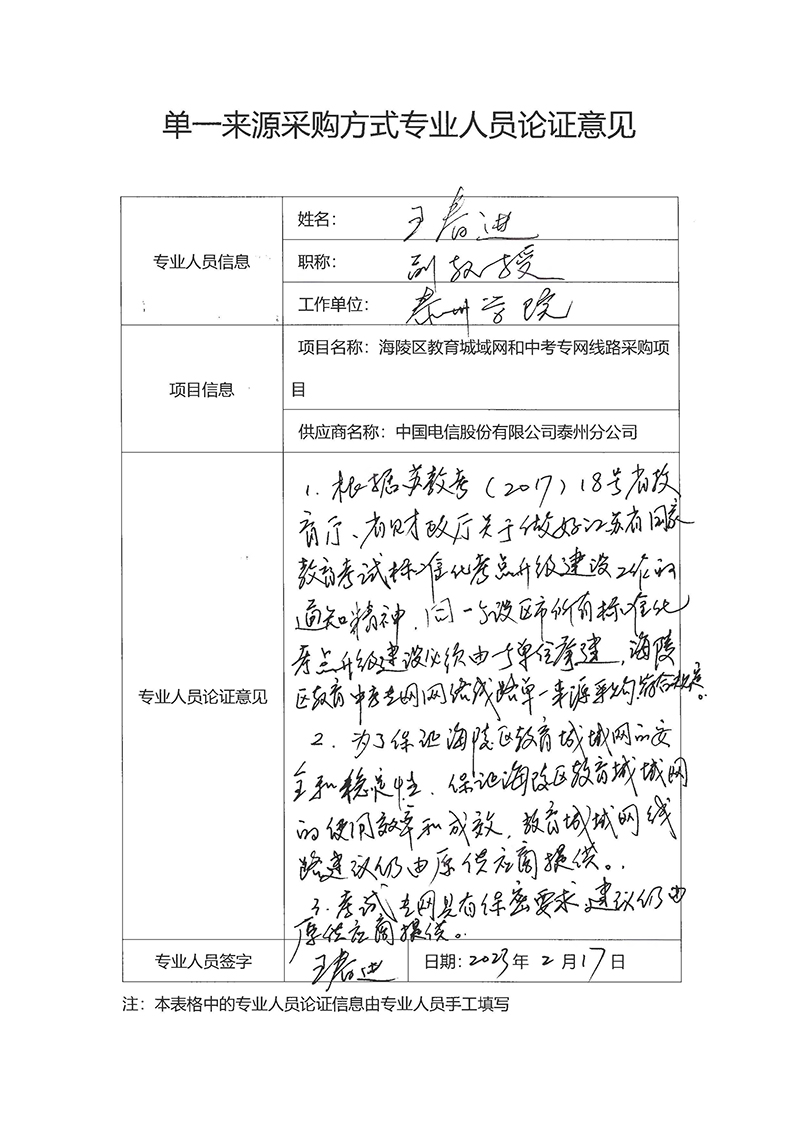 单一来源采购方式专业人员论证意见
专业人员信息
姓名： 王春进
职称： 副教授
工作单位： 泰州学院
项目信息
项目名称：海陵区教育城域网和中考专网线路采购项
目
供应商名称：中国电信股份有限公司泰州分公司
专业人员论证意见
1. 根据苏教考（2017）18号省教
育厅、省财政厅关于做好江苏省国家
教育考试标准化考点升级建设工作的
通知精神，同一个设区市所有标准化
考点升级建设必须由一个单位承建，海陵
区教育中考专网网络线路单一来源采购符合规定。
2. 为了保证海陵区教育城域网的安
全和稳定性、保证海陵区教育城域网
的使用效率和成效，教育城域网线
路建议仍由原供应商提供。
3. 考试专网具有保密要求，建议仍由
原供应商提供。
专业人员签字
王春进
日期：2023年 2 月17日
注：本表格中的专业人员论证信息由专业人员手工填写